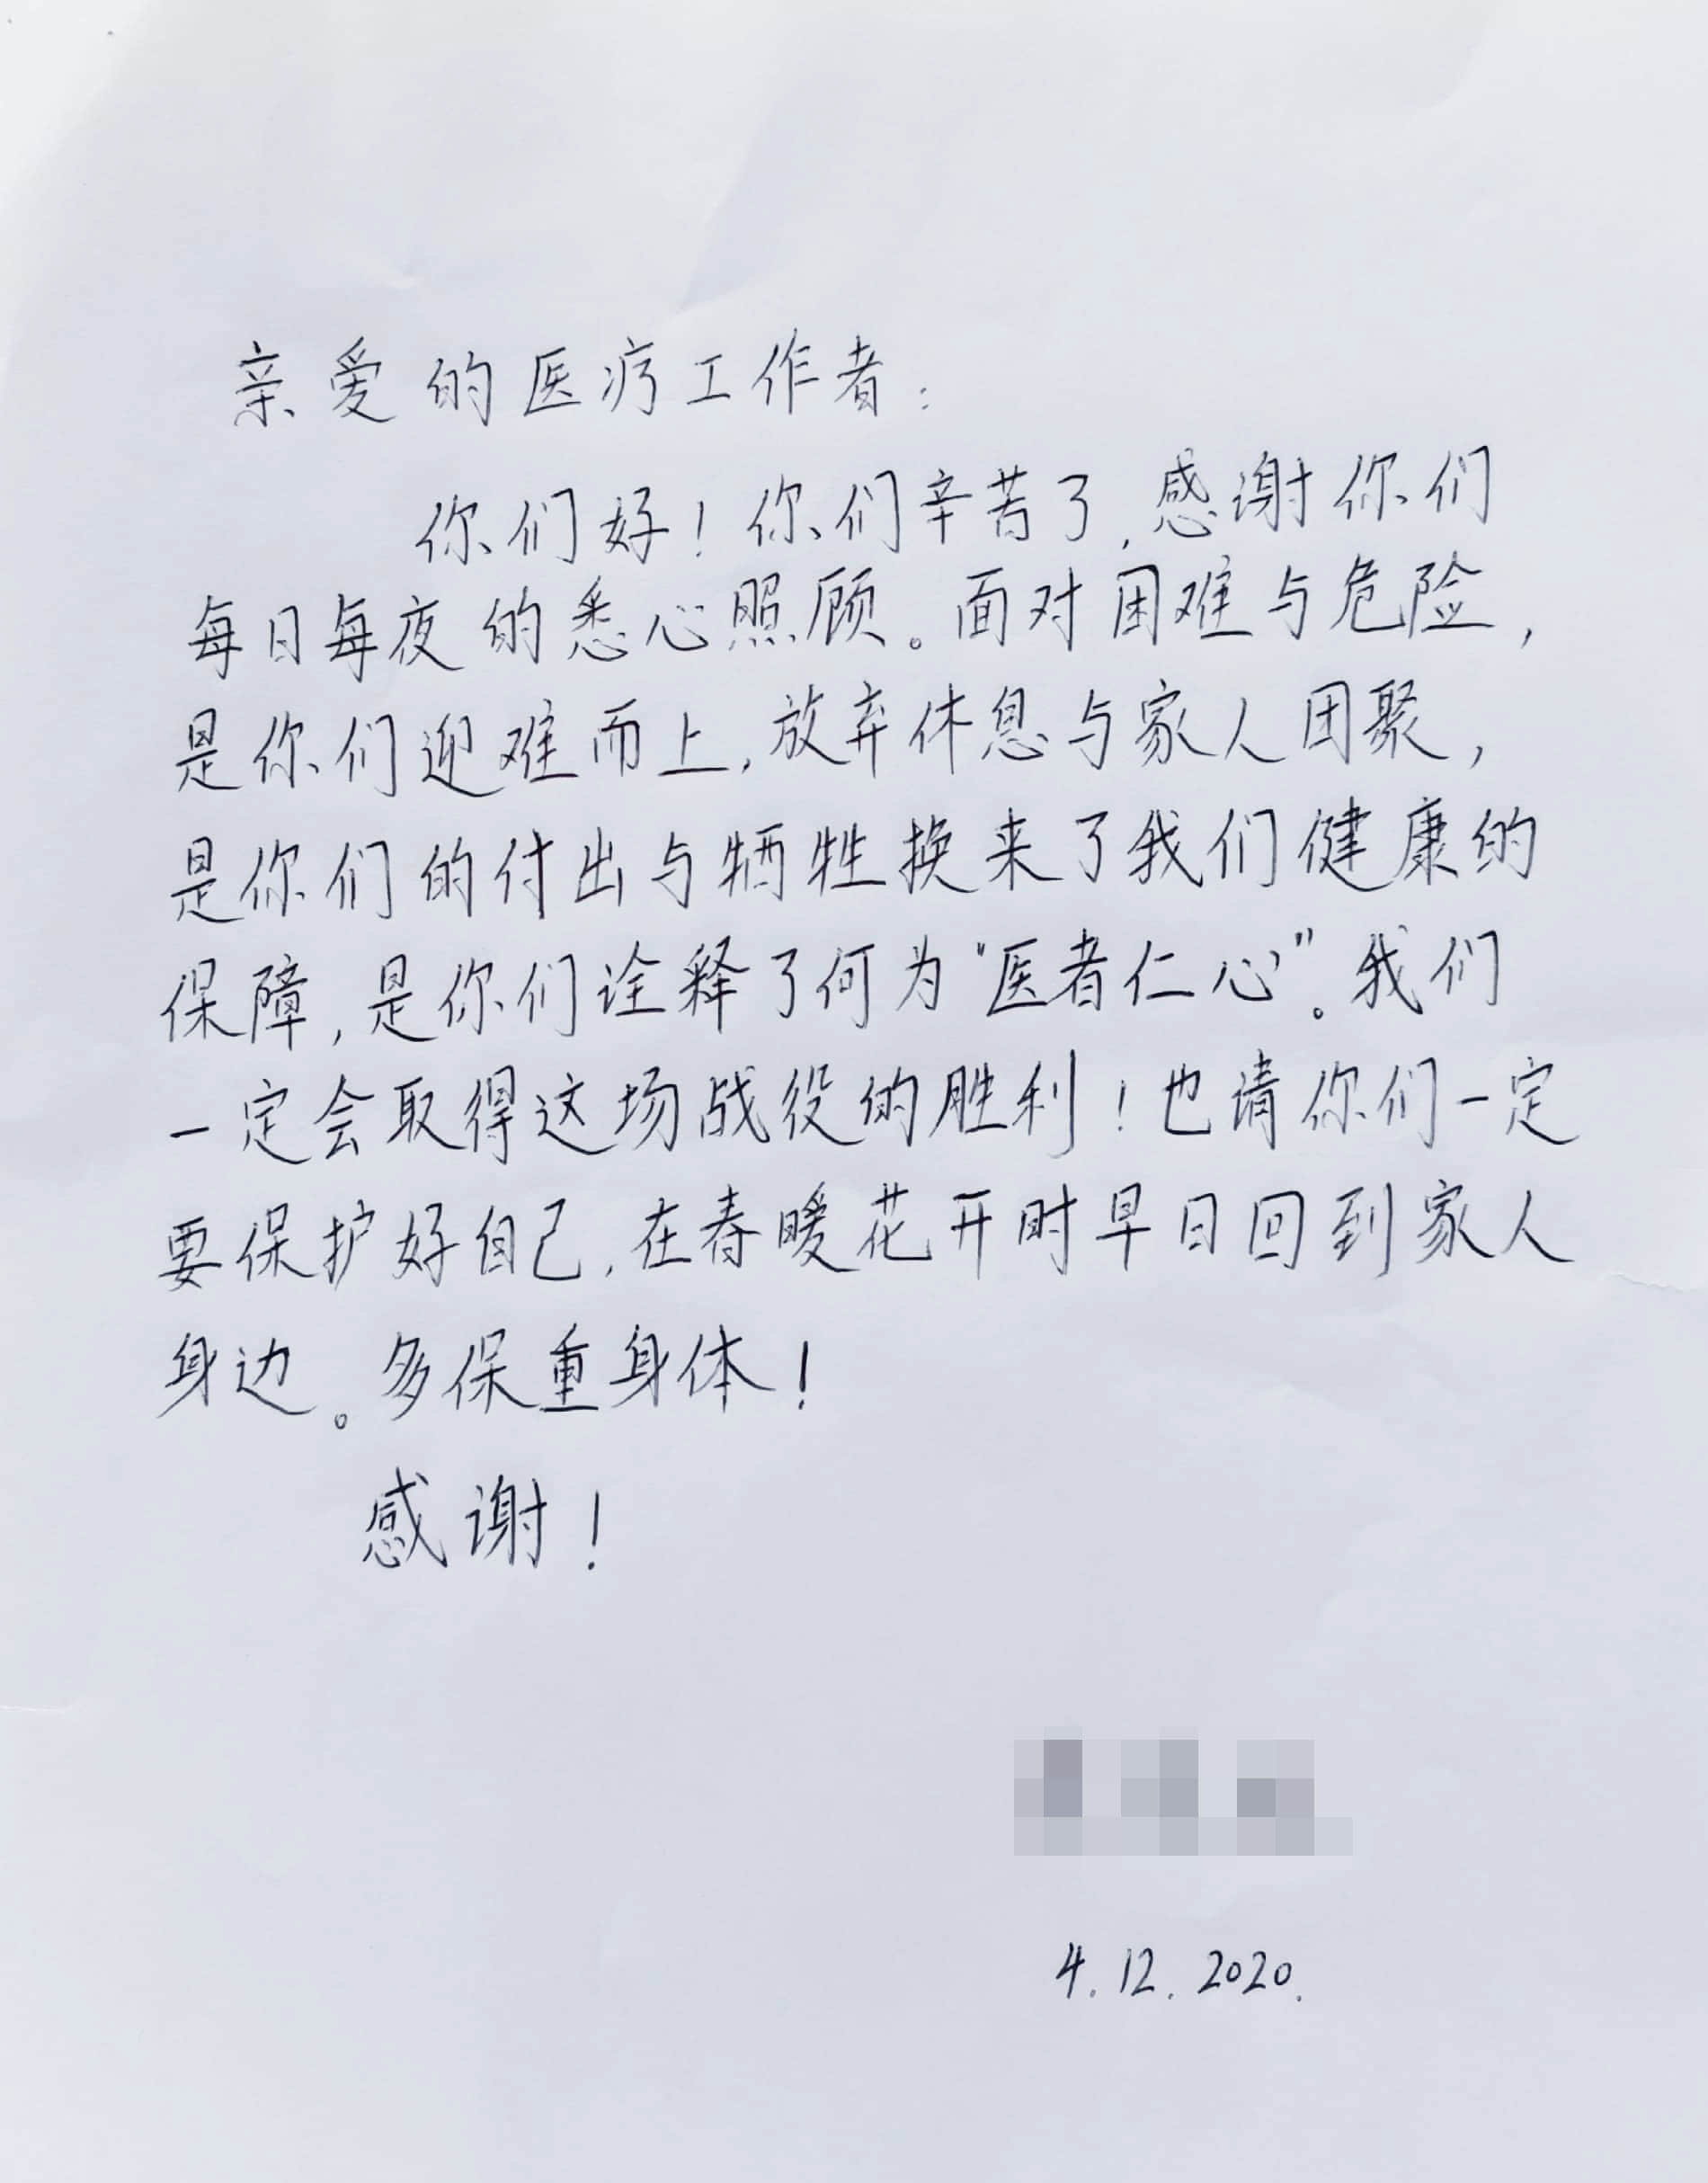 亲爱的医疗工作者：
你们好！你们辛苦了，感谢你们
每日每夜的悉心照顾。面对困难与危险，
是你们迎难而上，放弃休息与家人团聚，
是你们的付出与牺牲换来了我们健康的
保障，是你们诠释了何为“医者仁心”。我们
一定会取得这场战役的胜利！也请你们一定
要保护好自己，在春暖花开时早日回到家人
身边。多保重身体！
感谢！
4.12.2020.